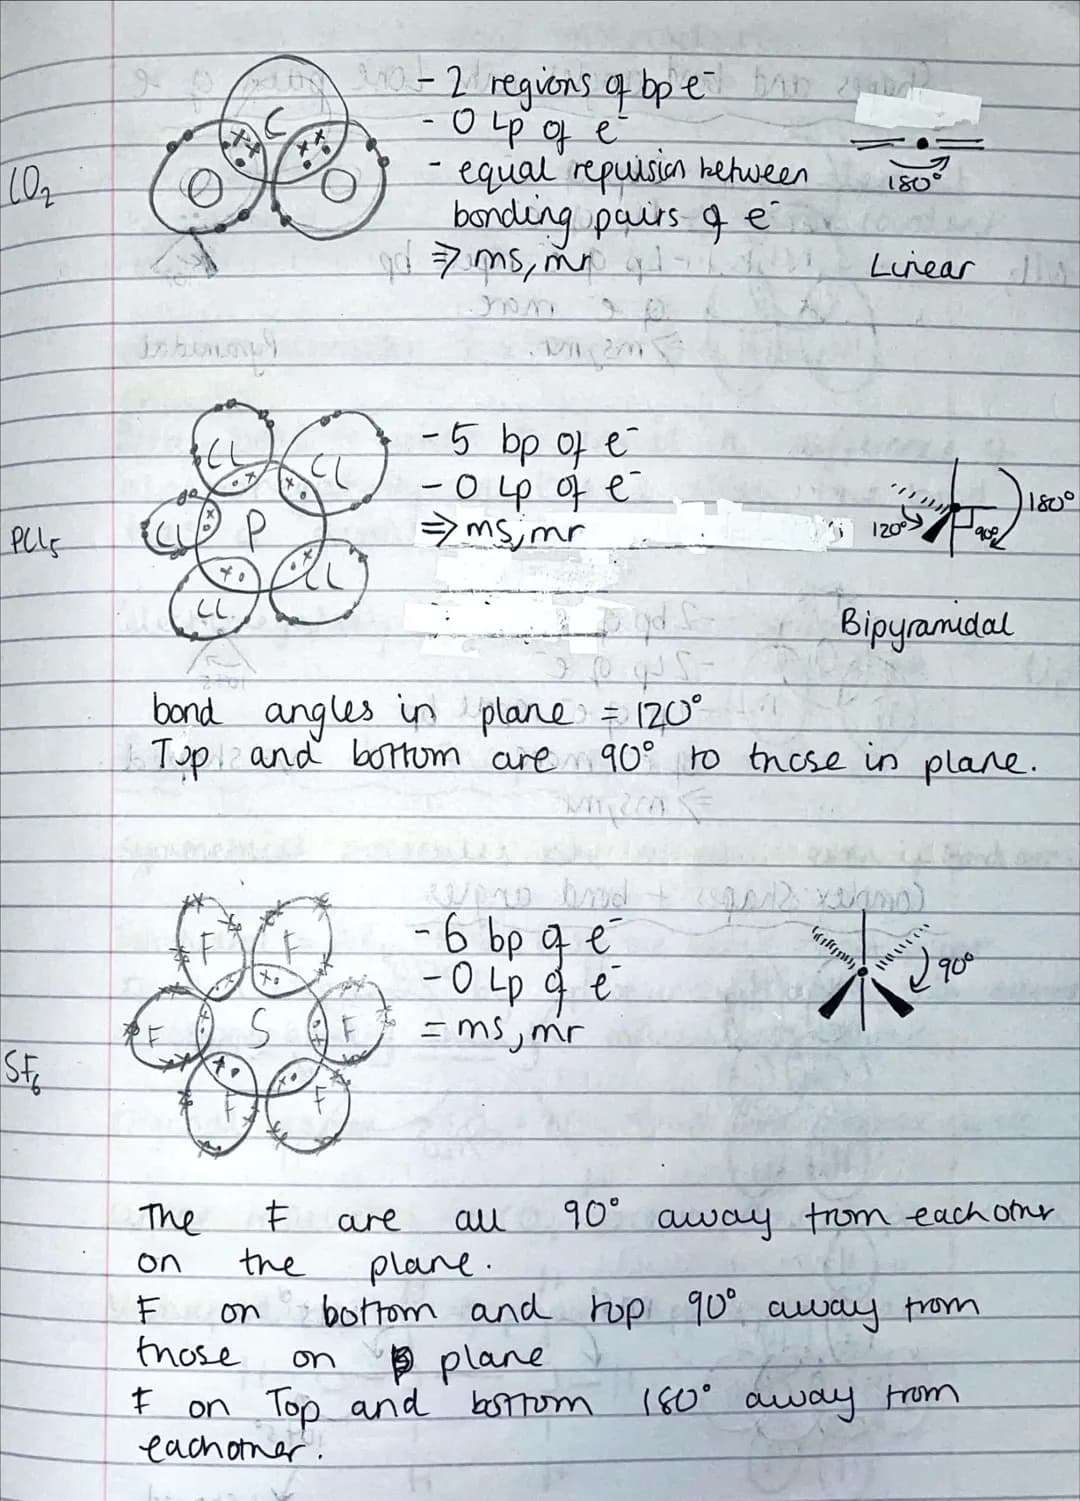 CO2
C
O
O
- 2 regions of bp e-
- 0 Lp of e-
- equal repulsion between
bonding pairs of e-
⇒ ms, mr
180°
Linear
PCl5
CL
CL
CL
P
CL
CL
- 5 bp of e-
- 0 Lp of e-
⇒ ms, mr
120°
90°
180°
Bipyramidal
bond angles in plane = 120°
Top and bottom are 90° to those in plane.
SF6
F
F
F
S
F
F
F
- 6 bp of e-
- 0 Lp of e-
= ms, mr
90°
The F are all 90° away from eachother
on the plane.
F on bottom and top 90° away from
those on plane
F on Top and bottom 180° away from
eachother.